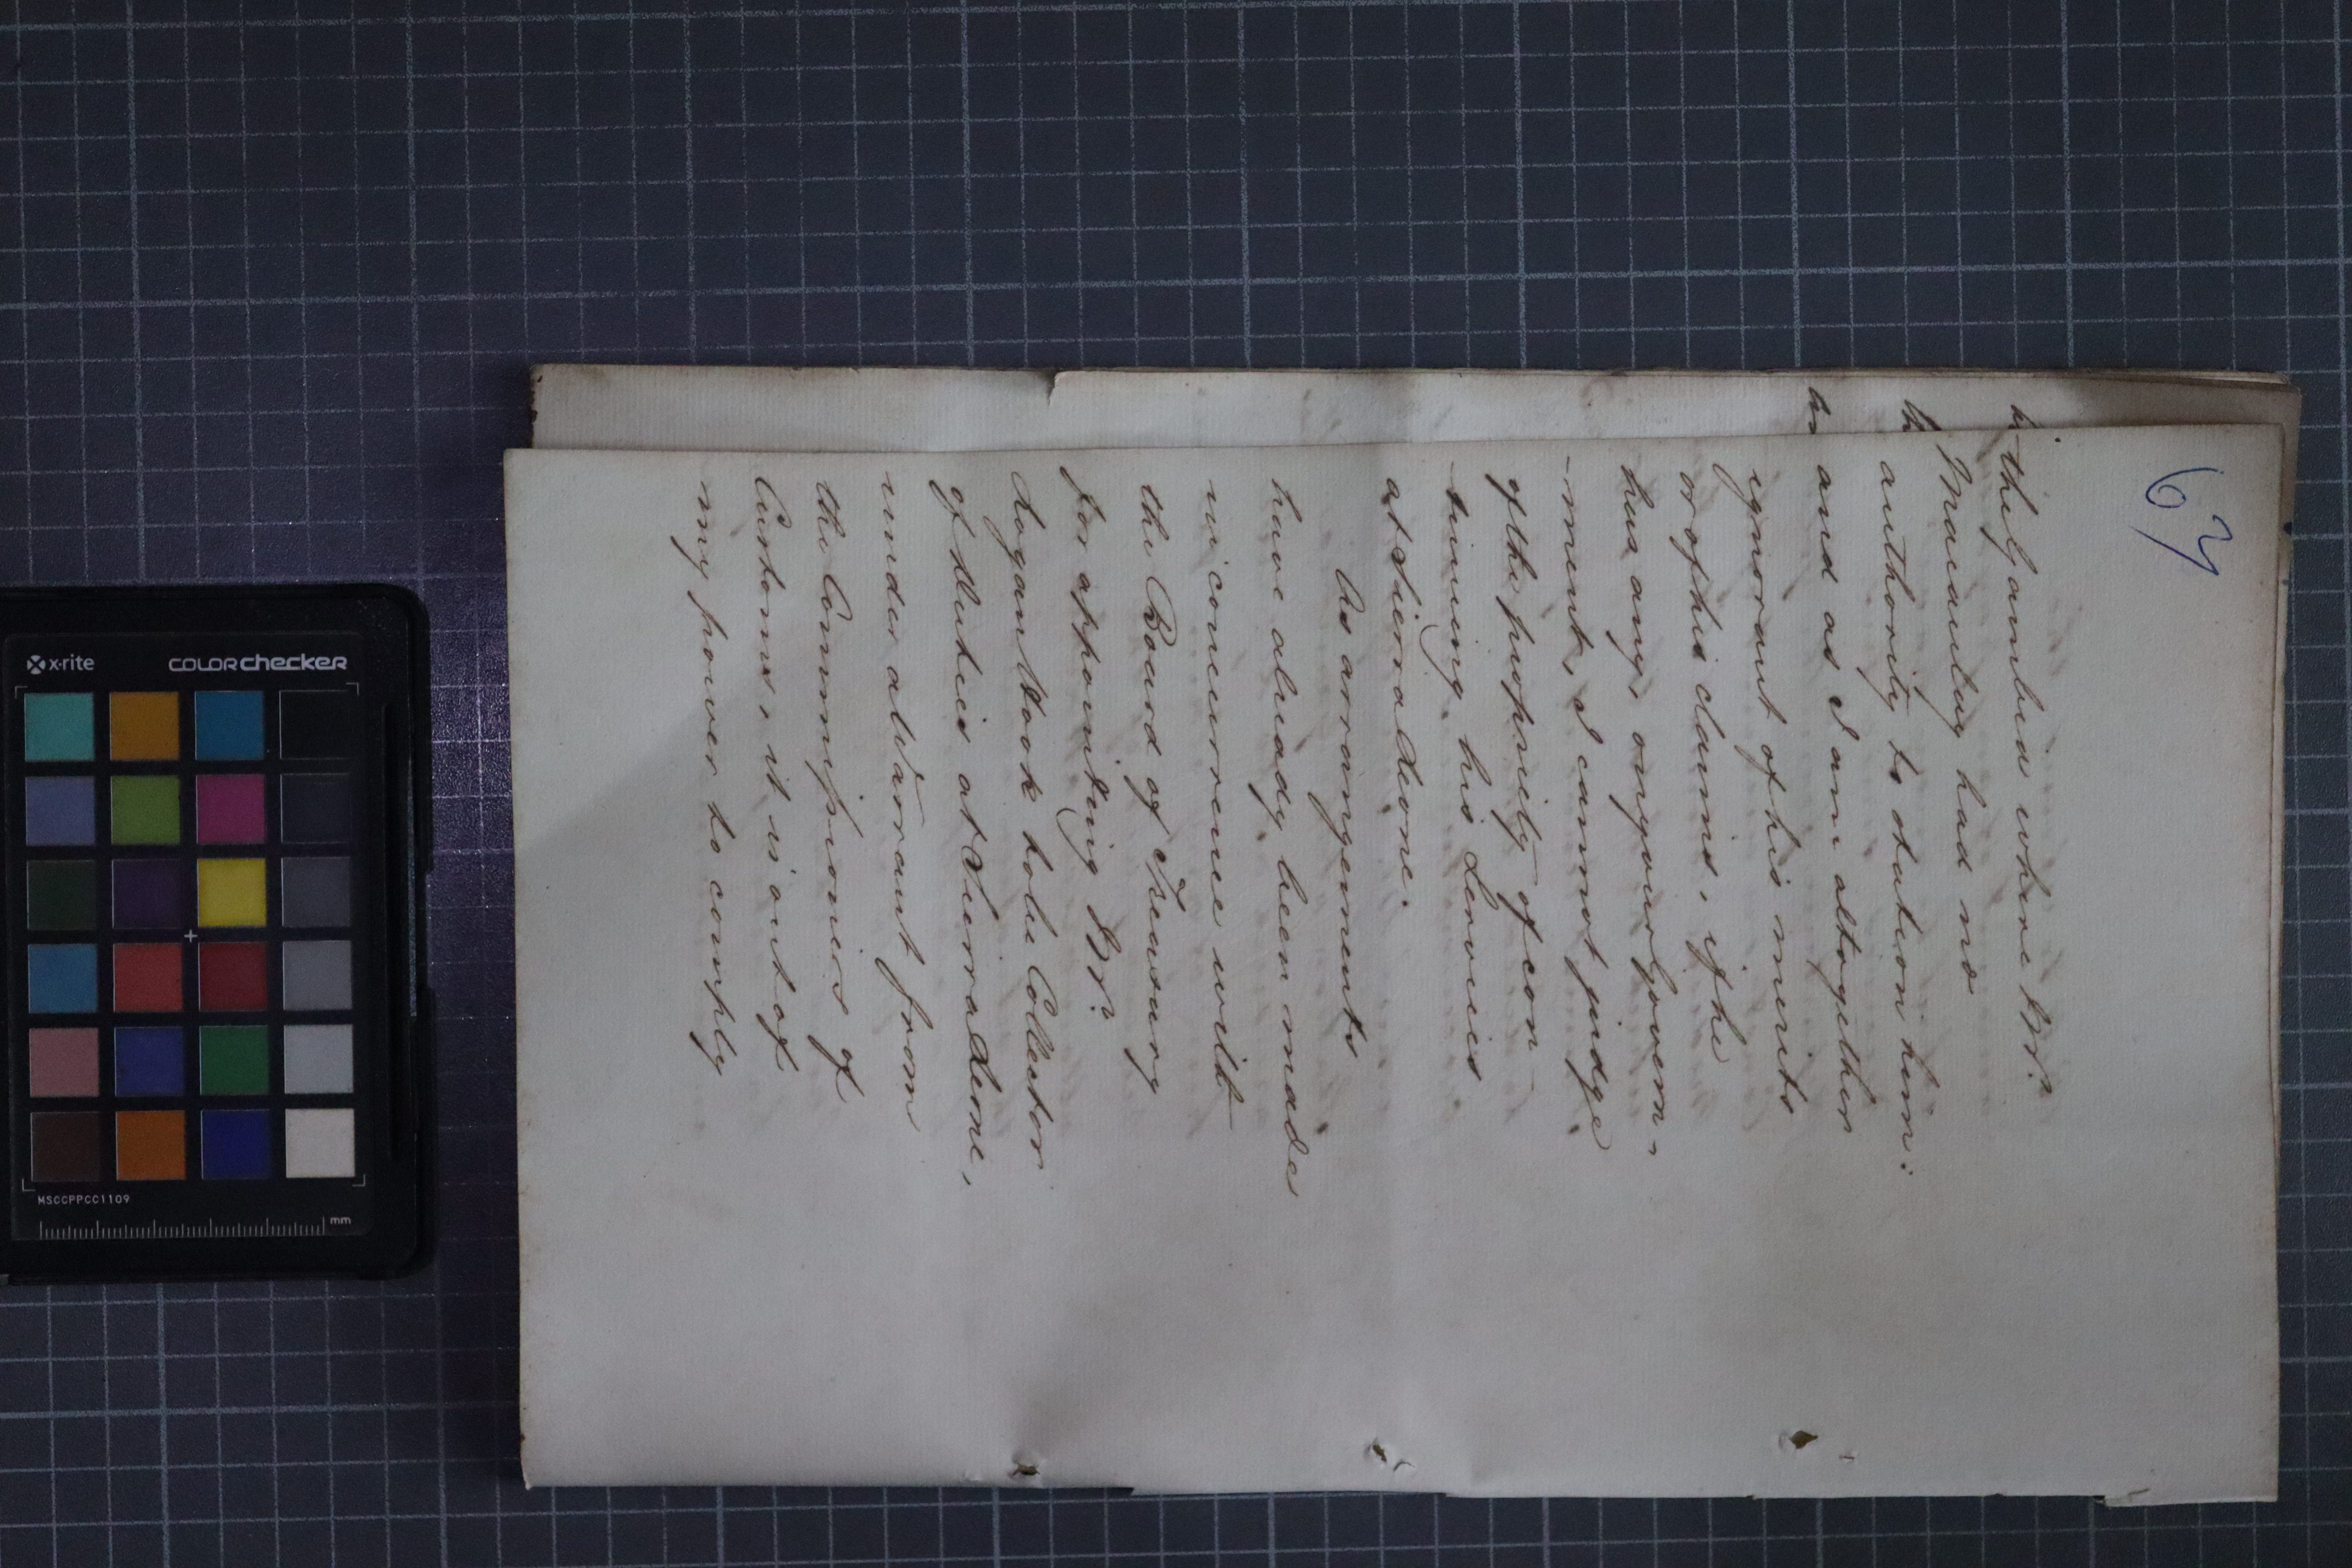 67
the Gambia where Mr.
Macaulay had no
authority to station him:
and as I am altogether
ignorant of his merits
or of his claims, if he
has any, on your Govern-
-ment, I cannot judge
of the propriety of con-
-tinuing his Services
at Sierra Leone.
As arrangements
have already been made
in concurrence with
the Board of Treasury
for appointing Mr.
Logan Hook to be Collector
of Duties at Sierra Leone,
under a Warrant from
the Commissioners of
Customs, it is out of
my power to comply
x-rite
COLORchecker
MSCCPPCC1109
mm